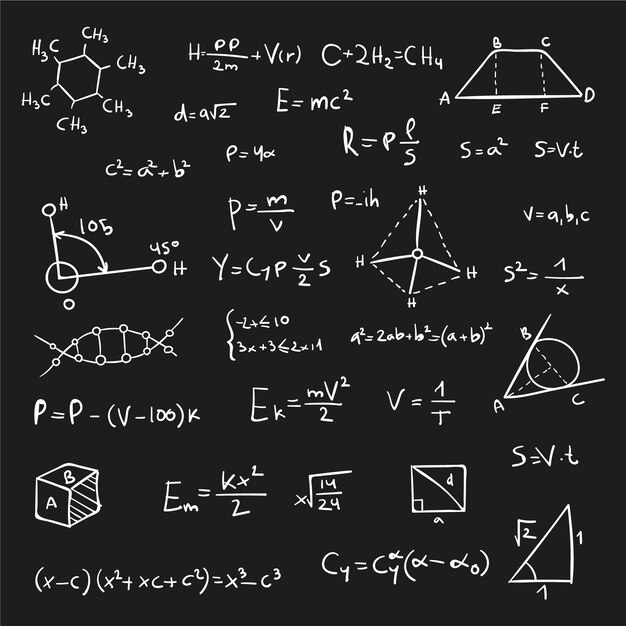 H₃C CH₃ CH₃ CH₃ CH₃ H₃C
H=pp/2m+V(r)
C+2H₂=CH₄
B C
A E F D
d=a√2
E=mc²
c²=a²+b²
P=4α
R=P ℓ/S
S=a²
S=V·t
H
105
45°
H
O
P=m/V
P=-ih
H H H H
V=a,b,c
Y=C₁P v/2 S
S²=1/x
{-2x≤10
3x+3≤2x+1
a²=2ab+b²=(a+b)²
B
A C
P=P-(V-100)K
Eₖ=mV²/2
V=1/T
S=V·t
B
A
Eₘ=Kx²/2
x√14/24
d
a
√2 1
1
(x-c)(x²+xc+c²)=x³-c³
Cy=Cyᵅ(α-α₀)